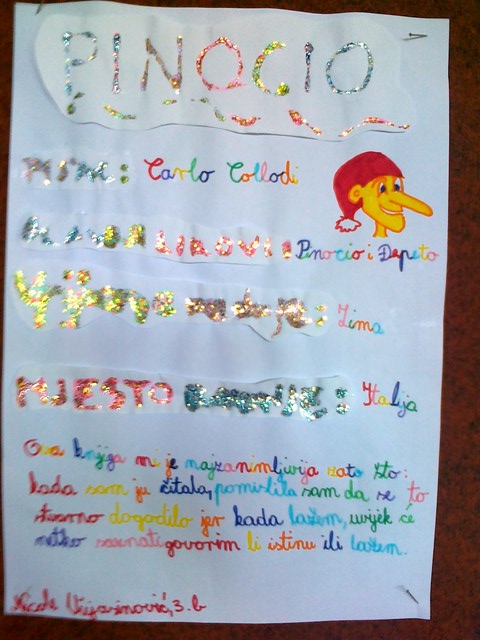 PINOCIO
Carlo Collodi
LIKOVI: Pinocio i Đepeto
Vrijeme radnje: Zima
MJESTO RADNJE: Italija
Ova knjiga mi je najzanimljivija zato što:
kada sam ju čitala, pomislila sam da se to
stvarno dogodilo jer kada lažem, uvijek će
netko saznati govorim li istinu ili lažem.
3. b